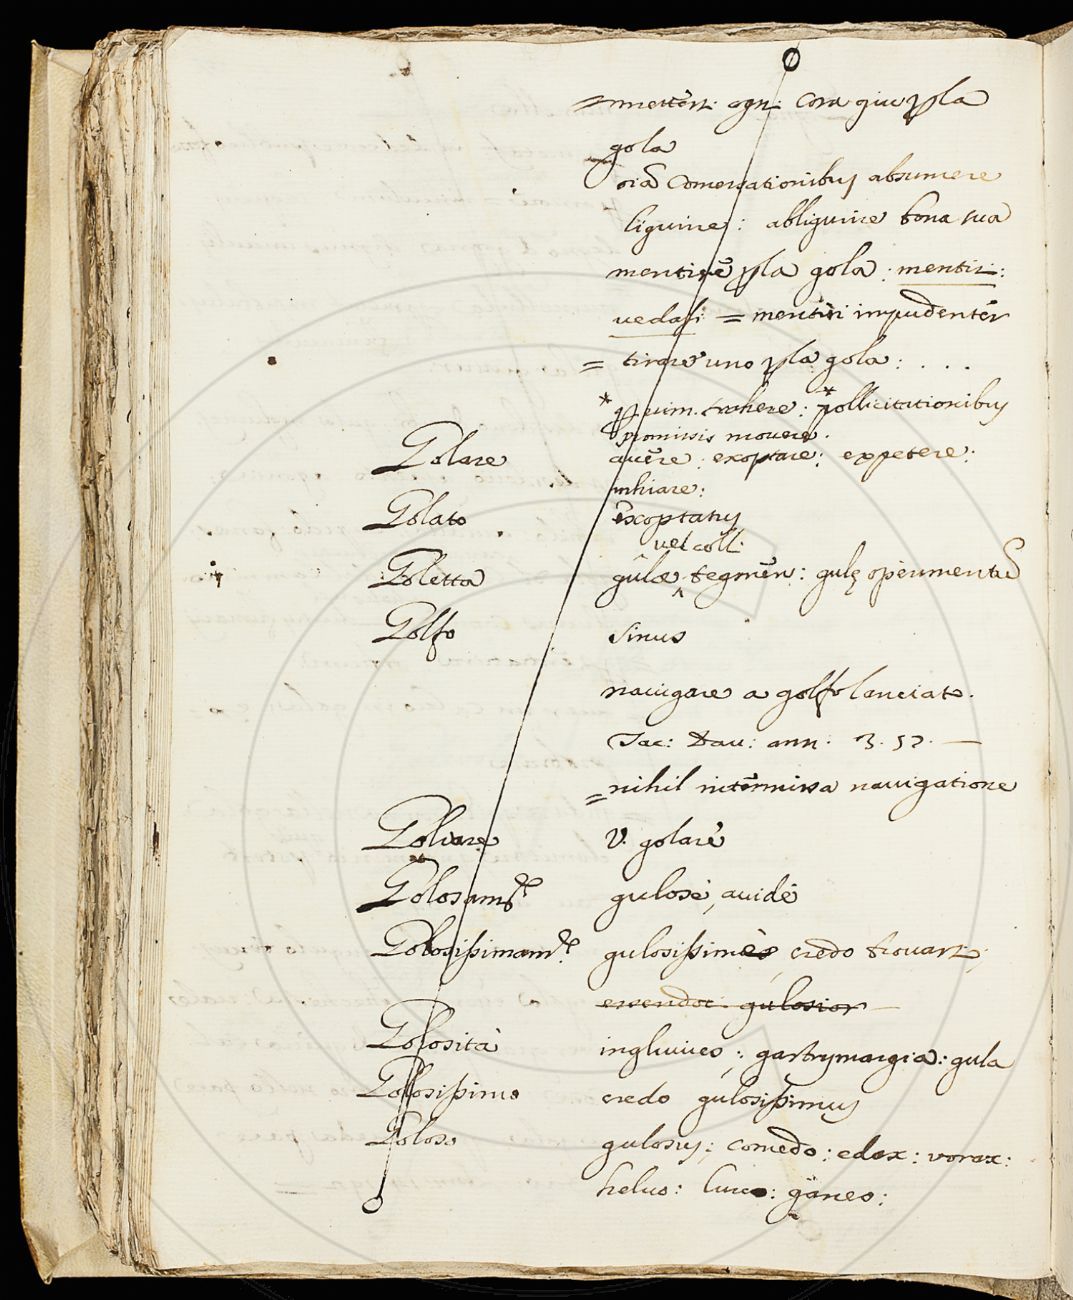 = metters: ogn: cosa giu p la
gola
oia comersationibus absumere
ligurire: abligurire bona sua
mentire p la gola: mentir:
vedasi = mentiri impudenter
= tirare uno p la gola: . . .
* trahere: * pollicitationibus
promissis movere.
Golare avere: exoptare: expetere:
inhiare:
Golato exoptatus
vel colli
Goletta gulae ‸ tegmen: gulę operimentu
Golfo sinus
navigare a golfo lanciato.
Tac: Dav: ann: 3.
= nihil intermissa navigatione
Goliare V. golare
Golosamte gulosè, avidè
Golosissimamte gulosissime, credo trovarsi;
essendoci gulosior
Golosità ingluvies; gastrymargia: gula
Golosissimo credo gulosissimus
Goloso gulosus; comedo: edax: vorax:
heluo: lurco: ganeo: